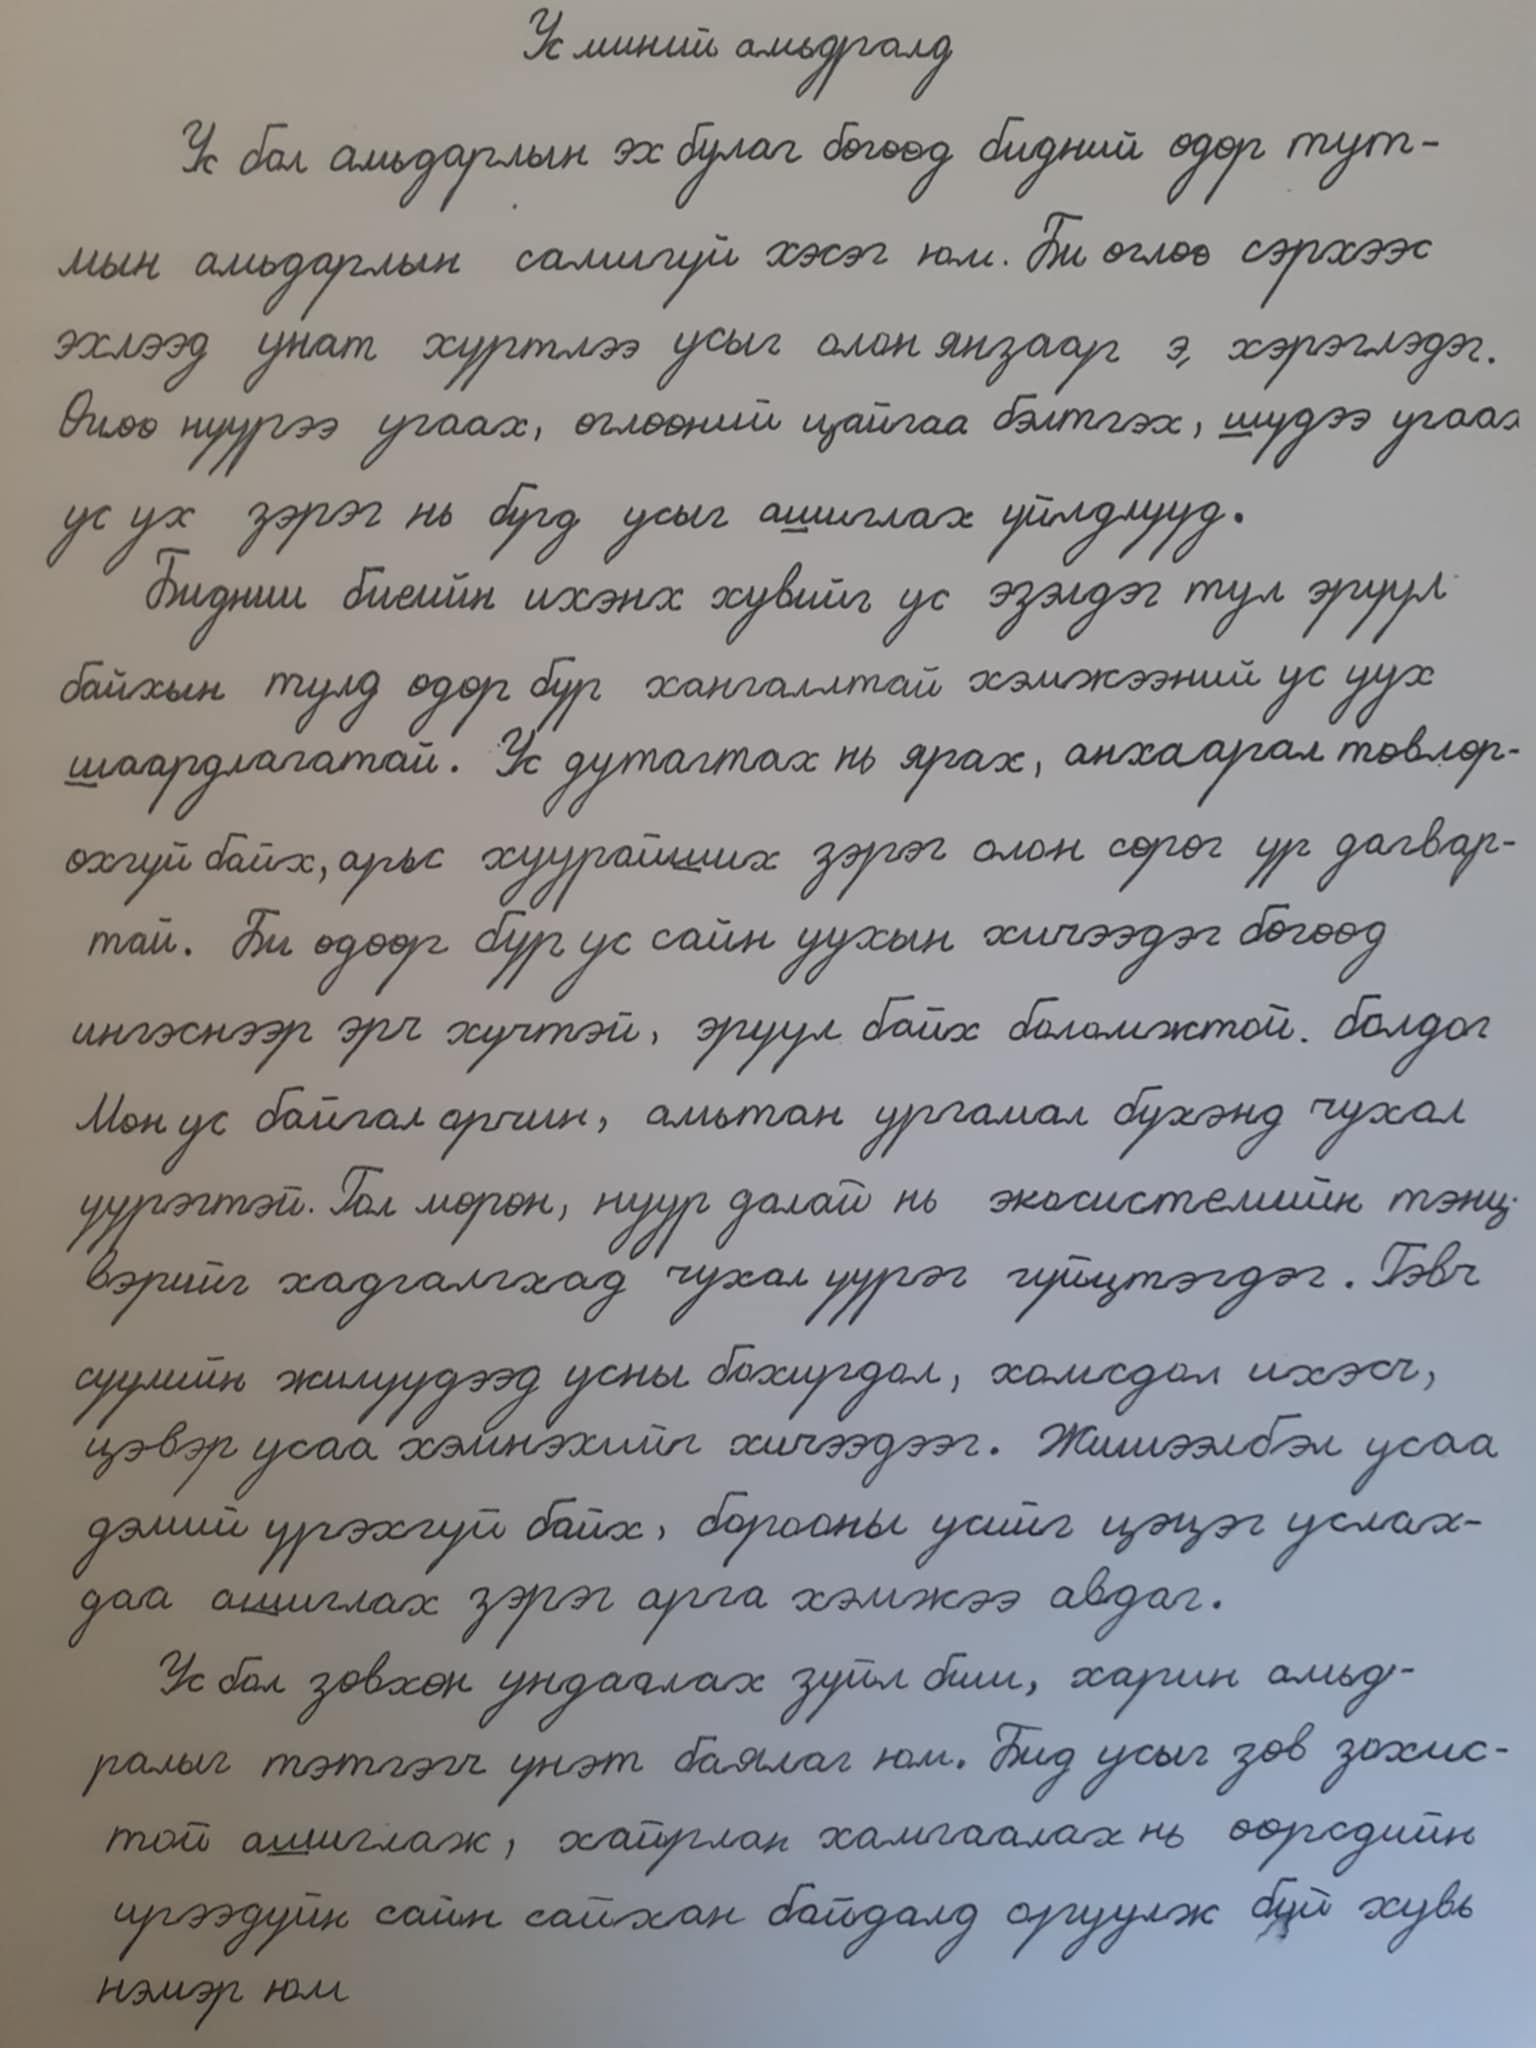 Ус миний амьдралд
Ус бол амьдарлын эх булаг бөгөөд бидний өдөр тут-
мын амьдарлын салшгүй хэсэг юм. Би өглөө сэрхээс
эхлээд унат хүртлээ усыг олон янзаар э, хэрэглэдэг.
Өглөө нүүрээ угаах, өглөөний цайгаа бэлтгэх, шүдээ угаах
ус ух зэрэг нь бүгд усыг ашиглах үйлдлүүд.
Бидний биеийн ихэнх хувийг ус эзэлдэг тул эрүүл
байхын тулд өдөр бүр хангаллтай хэмжээний ус уух
шаардлагатай. Ус дутагтах нь ярах, анхаарал төвлөр-
өхгүй байх, арьс хуурайших зэрэг олон сөрөг үр дагвар-
тай. Би өдөөр бүр ус сайн уухын хичээдэг бөгөөд
ингэснээр эрч хүчтэй, эрүүл байх боломжтой. болдог
Мөн ус байгал орчин, амьтан ургамал бүхэнд чухал
үүрэгтэй. Гол мөрөн, нуур далай нь экосистемийн тэнц-
вэрийг хадгалгхад чухал үүрэг гүйцтэгдэг. Гэвч
сүүлийн жилүүдээд усны бохирдол, хомсдол ихэсч,
цэвэр усаа хэмнэхийг хичээдээг. Жишээлбэл усаа
дэмий үргэхгүй байх, борооны усийг цэцэг услах-
даа ашиглах зэрэг арга хэмжээ авдаг.
Ус бол зөвхөн ундаалах зүйл биш, харин амьд-
ралыг тэтгэгч үнэт баялаг юм. Бид усыг зөв зохис-
той ашиглаж, хайрлан хамгаалах нь өөрсдийн
ирээдүйн сайн сайхан байдалд оруулж буй хувь
нэмэр юм